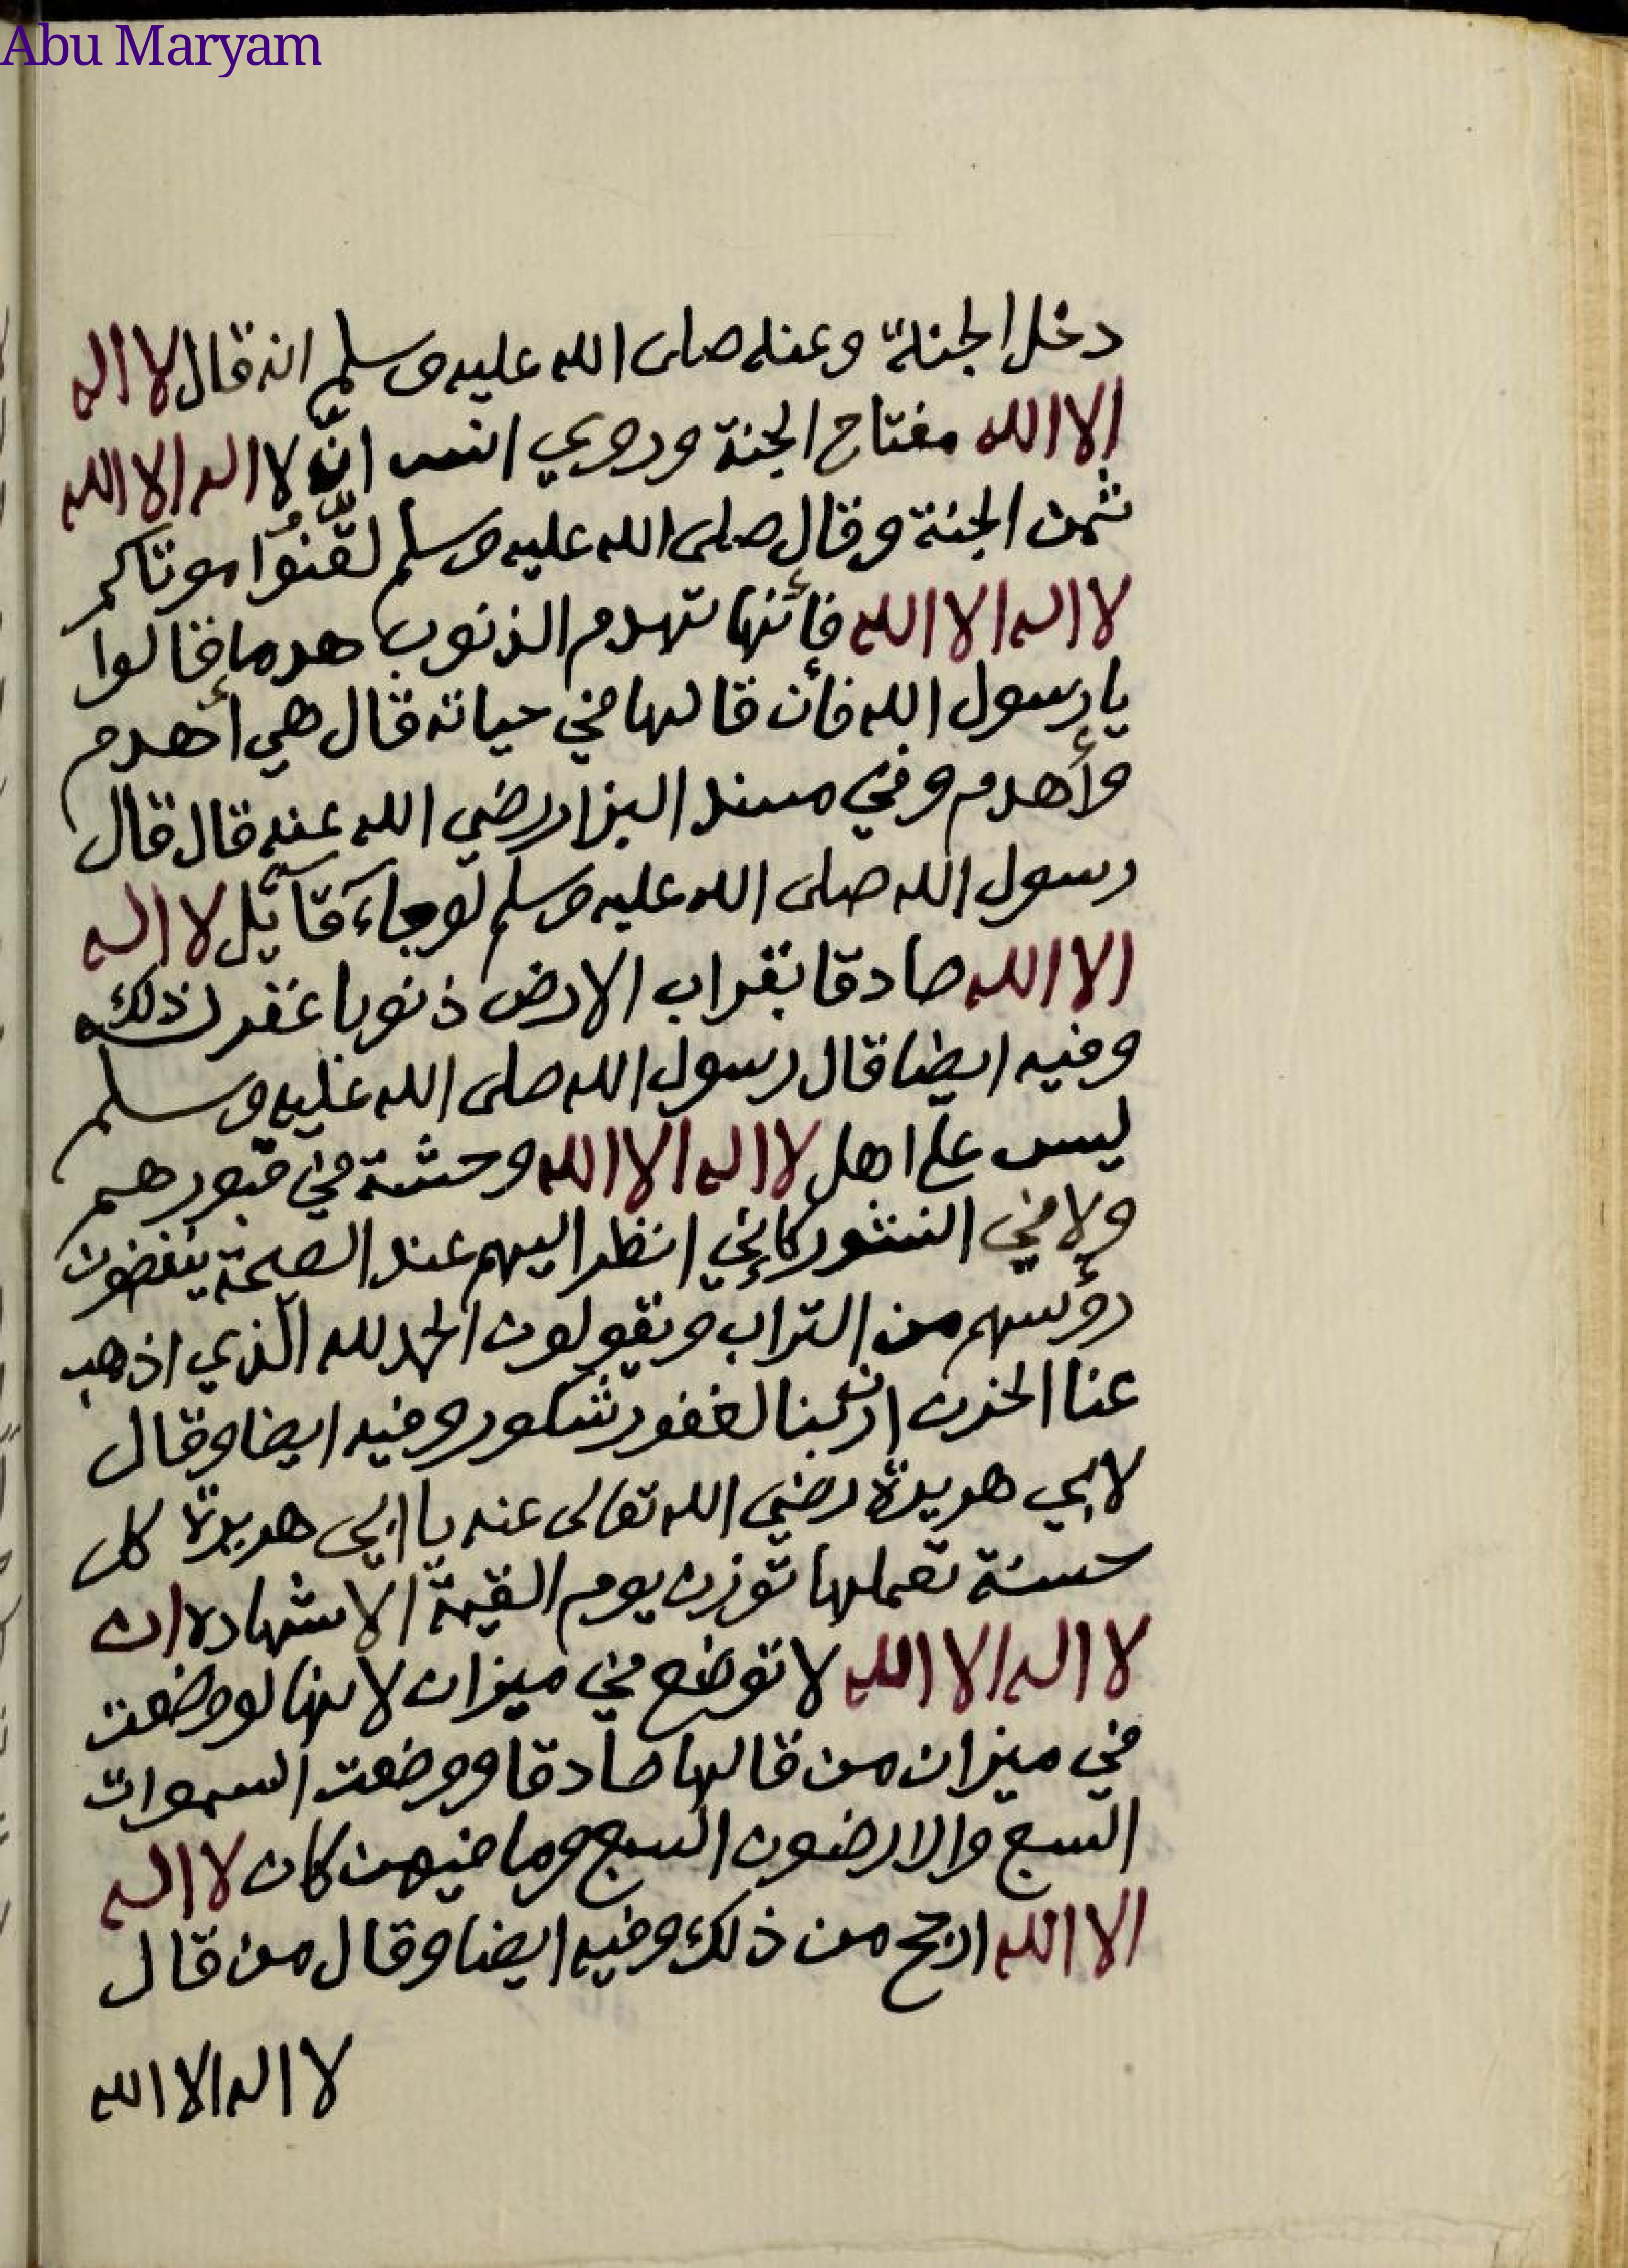 Abu Maryam
دخل الجنة وعنه صلى الله عليه وسلم انه قال لا اله
الا الله مفتاح الجنة وروي انس انّ لا اله الا الله
ثمن الجنة وقال صلى الله عليه وسلم لقّنُوا موتاكم
لا اله الا الله فأنها تهدم الذنوب هدما فقالوا
يا رسول الله فأن قالها في حياته قال هي أهدم
وأهدم وفي مسند البزار رضي الله عنه قال قال
رسول الله صلى الله عليه وسلم لو جاء قآئل لا اله
الا الله صادقا بقراب الارض ذنوبا غفر له ذلك
وفيه ايضا قال رسول الله صلى الله عليه وسلم
ليس على اهل لا اله الا الله وحشة في قبورهم
ولا في النشور كاني انظر اليهم عند الصيحة ينفضون
رؤسهم من التراب ويقولون الحمد لله الّذي اذهب
عنا الحزن ان ربنا لغفور شكور وفيه ايضا وقال
لابي هريرة رضي الله تعالى عنه يا ابي هريرة كل
حسنة تعملها توزن يوم القيمة الا شهاده ان
لا اله الا الله لا توضع في ميزان لانها لو وضعت
في ميزان من قالها صادقا ووضعت السموات
السبع والارضون السبع وما فيهن كان لا اله
الا الله ارجح من ذلك وفيه ايضا وقال من قال
لا اله الا الله